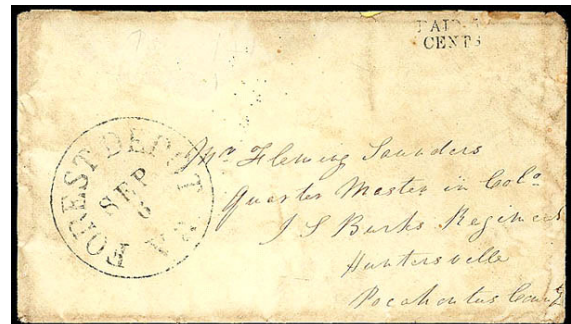 PAID 5
CENTS
FOREST DEPOT VA
SEP
6
Mr Fleming Saunders
Quarter Master in Colo
J S Burks Regiment
Huntersville
Pocahontas County